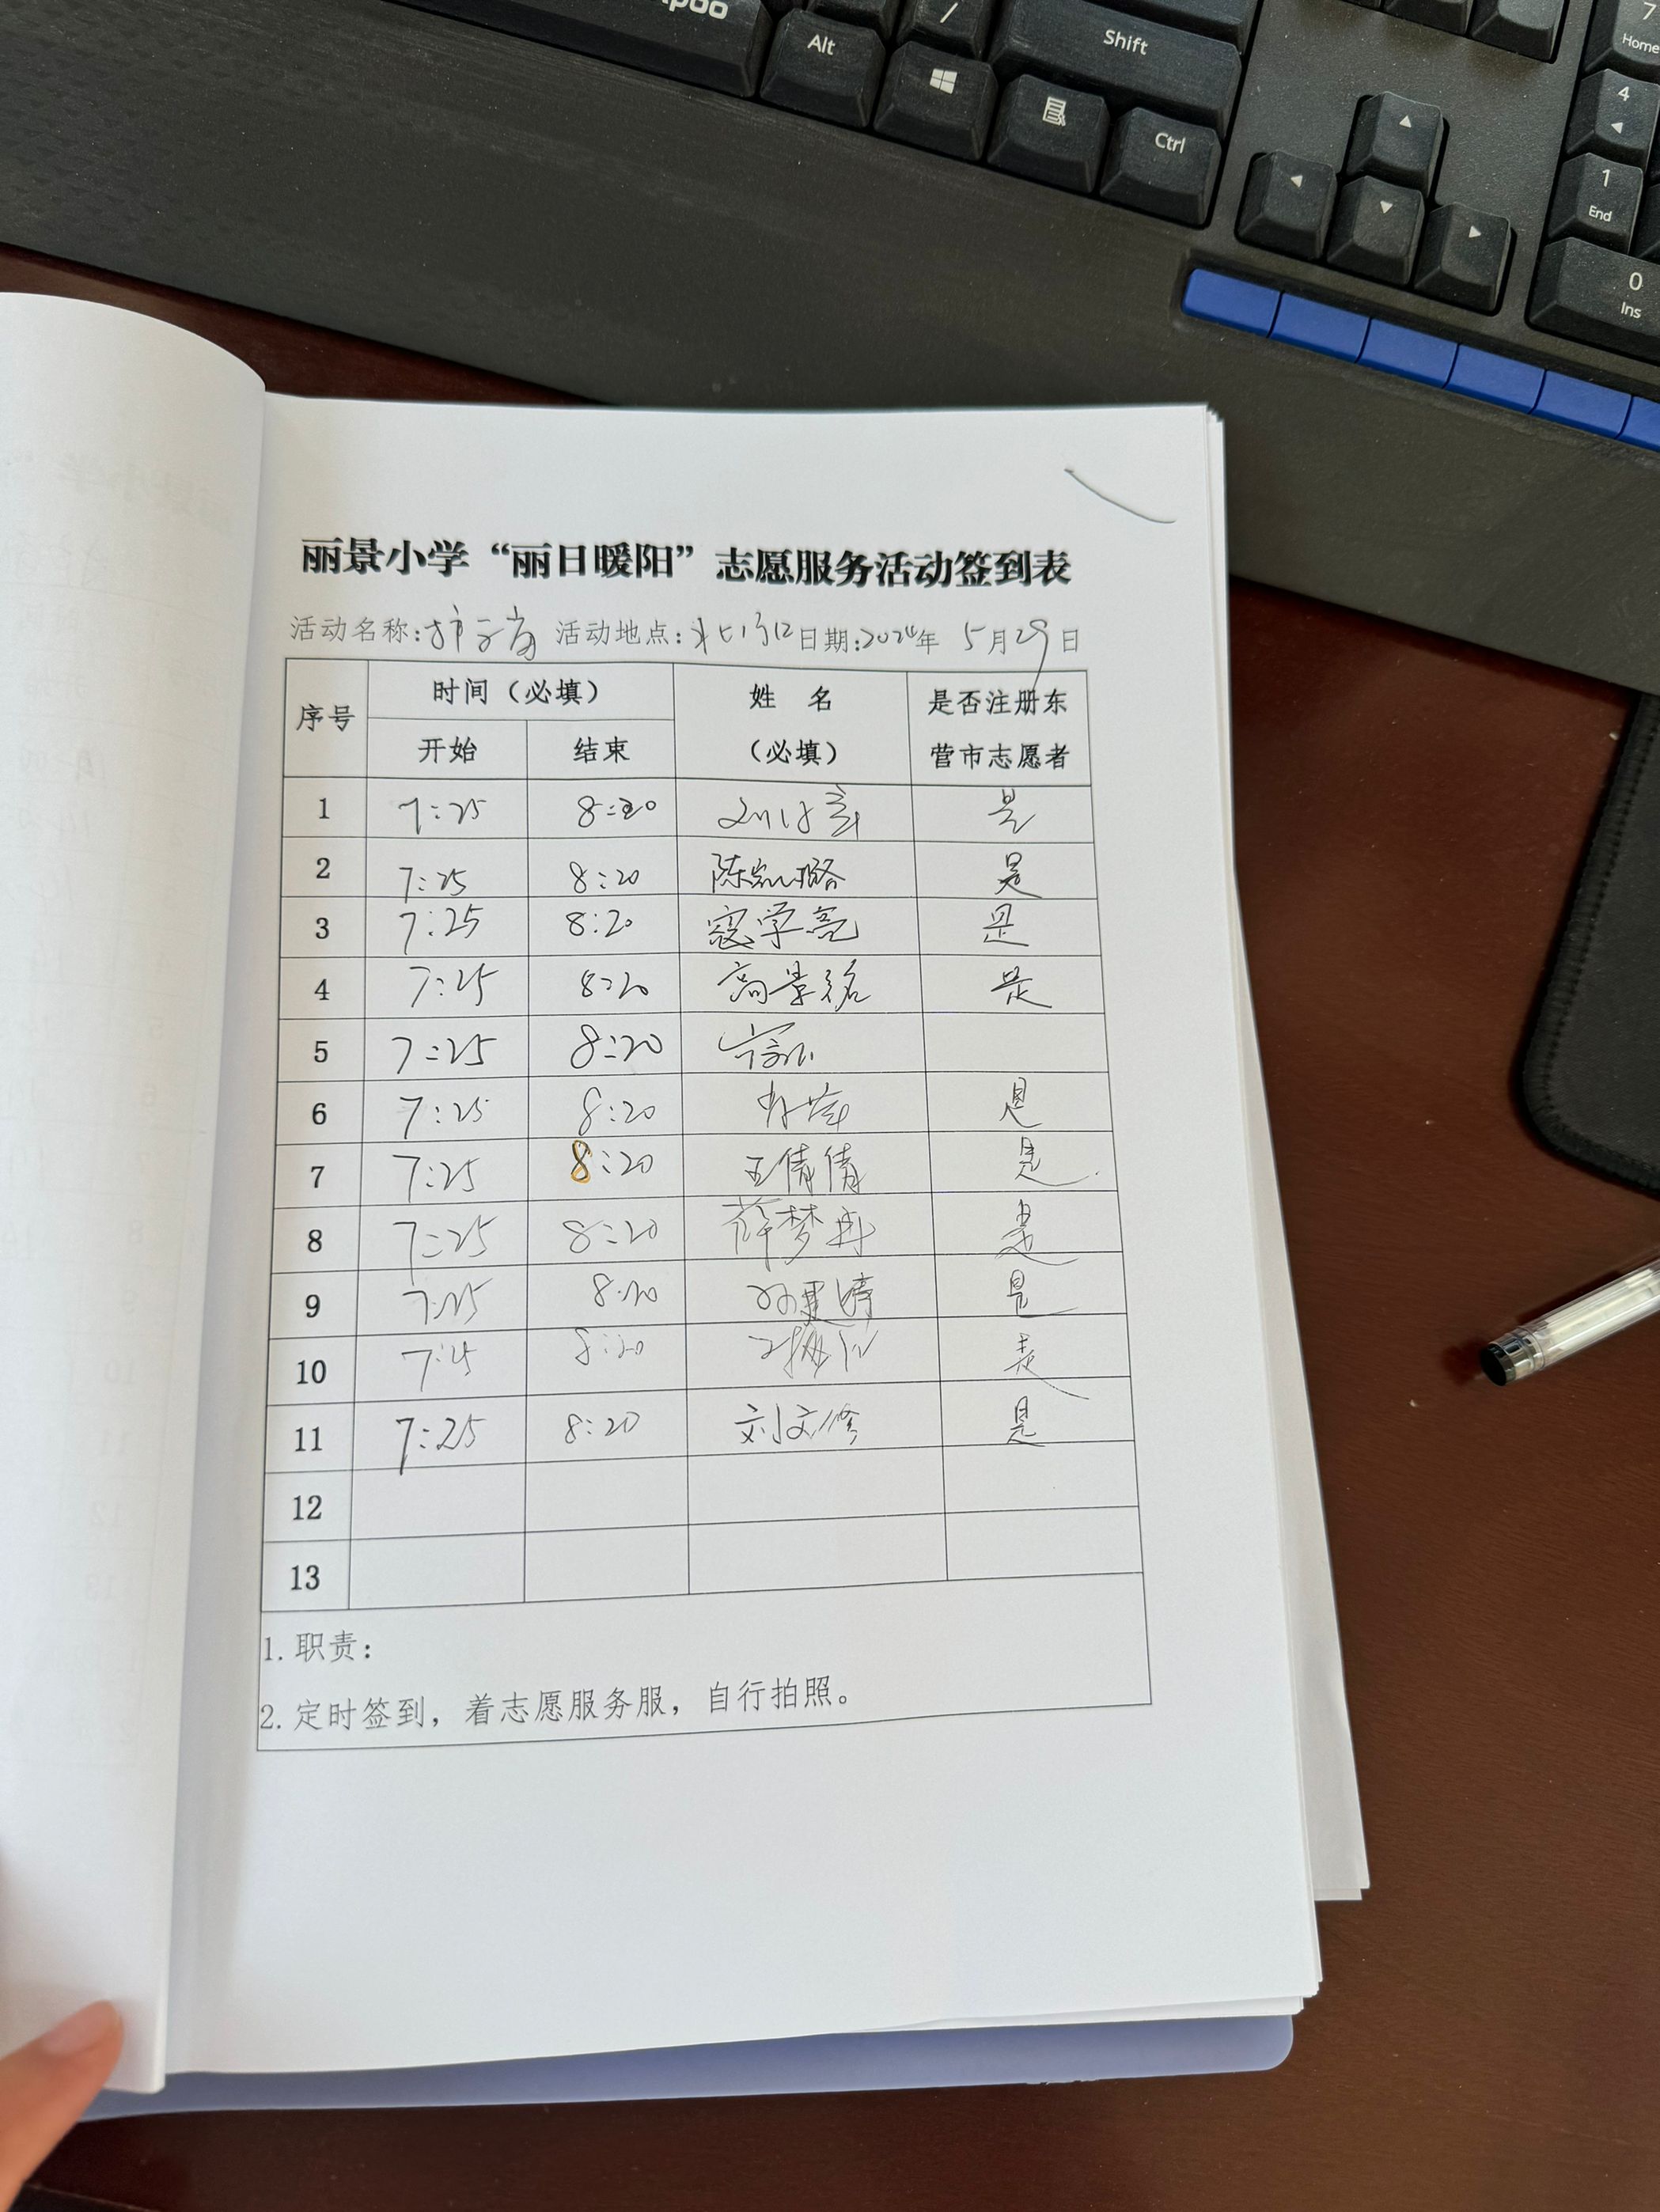 Alt
/
Shift
Ctrl
7
Home
4
1
End
0
Ins
丽景小学“丽日暖阳”志愿服务活动签到表
活动名称:护子岗 活动地点:北门口 日期:2024年 5月29日
序号 时间（必填） 姓 名（必填） 是否注册东营市志愿者
开始 结束
1 7:25 8:20 是
2 7:25 8:20 陈凯璐 是
3 7:25 8:20 寇学亮 是
4 7:25 8:20 高景铭 是
5 7:25 8:20
6 7:25 8:20 是
7 7:25 8:20 王倩倩 是
8 7:25 8:20 薛梦冉 是
9 7:25 8:20 是
10 8:20 是
11 7:25 8:20 刘文修 是
12
13
1.职责：
2.定时签到，着志愿服务服，自行拍照。